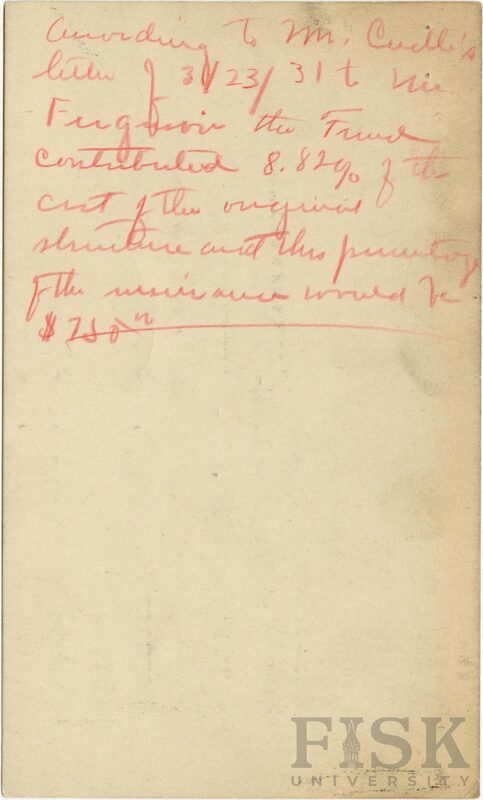 According to Mr. Credle's
letter of 3/23/31 to Mr.
Ferguson the Fund
contributed 8.82% of the
cost of the original
structure and this percentage
of the insurance would be
$750.00
FISK
UNIVERSITY